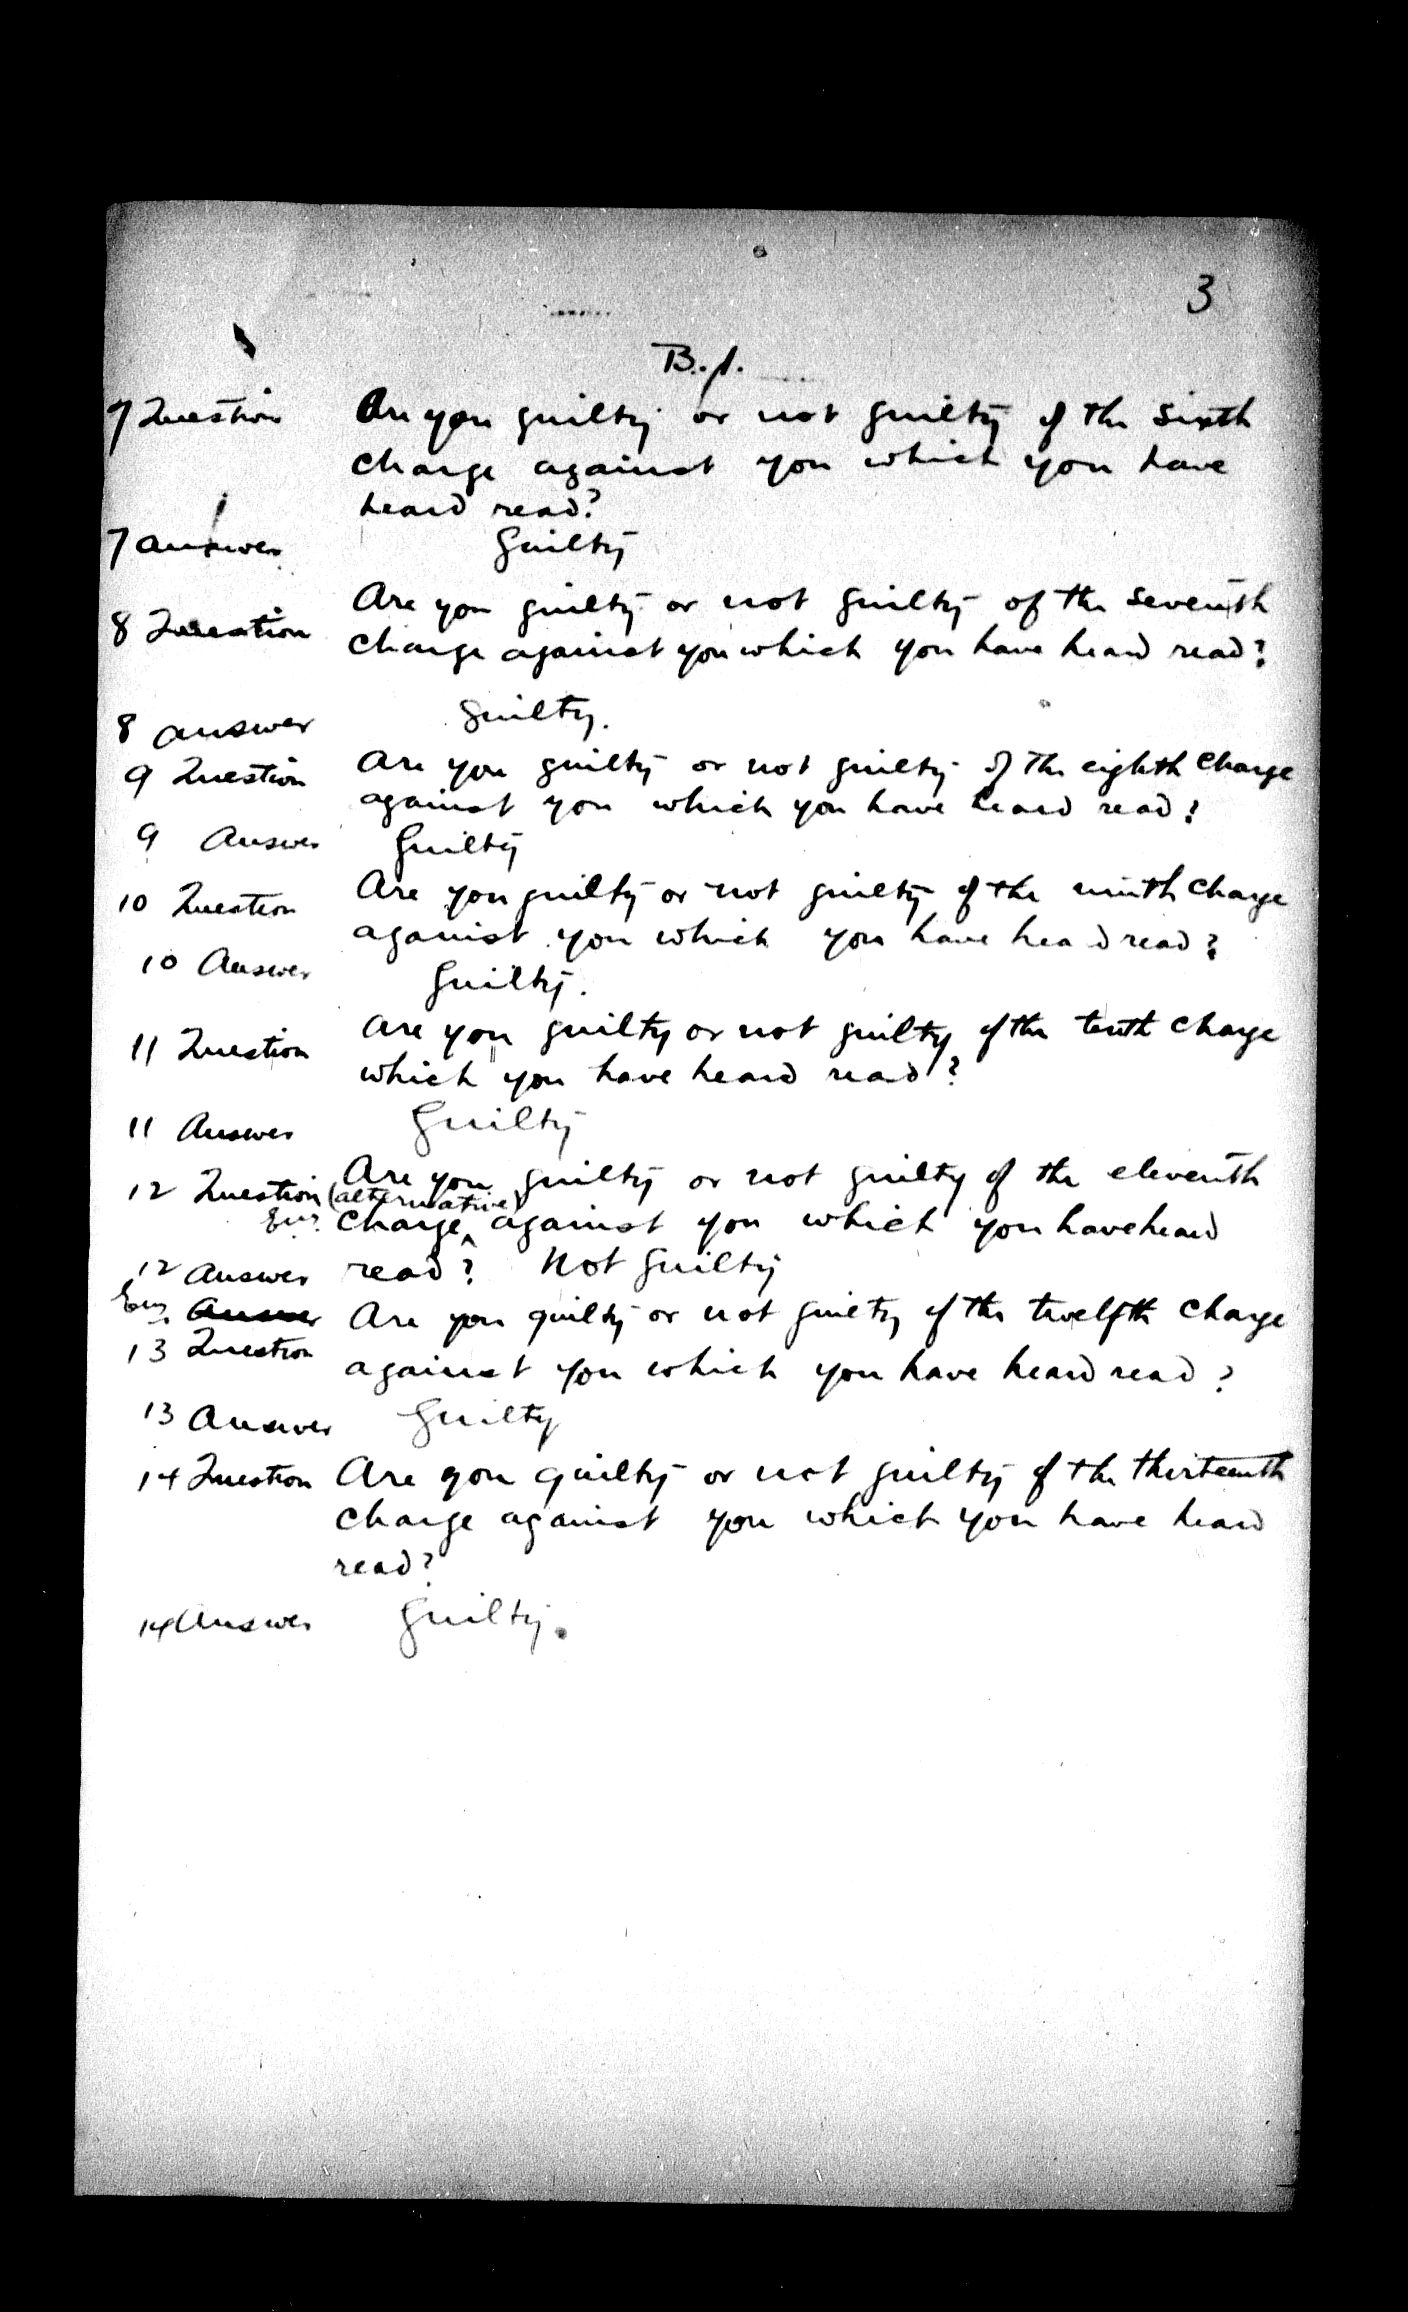 3
B.1.
7 Question Are you guilty or not guilty of the sixth
charge against you which you have
heard read?
7 answer Guilty
8 Question Are you guilty or not guilty of the seventh
charge against you which you have heard read?
8 answer Guilty.
9 Question Are you guilty or not guilty of the eighth charge
against you which you have heard read?
9 Answer Guilty
10 Question Are you guilty or not guilty of the ninth charge
against you which you have heard read?
10 Answer Guilty.
11 Question Are you guilty or not guilty of the tenth charge
which you have heard read?
11 Answer Guilty
12 Question Are you guilty or not guilty of the eleventh
(alternative)
charge against you which you have heard
12 Answer read? Not Guilty
Answer Are you guilty or not guilty of the twelfth charge
13 Question
against you which you have heard read?
13 Answer Guilty
14 Question Are you guilty or not guilty of the thirteenth
charge against you which you have heard
read?
14 Answer Guilty.